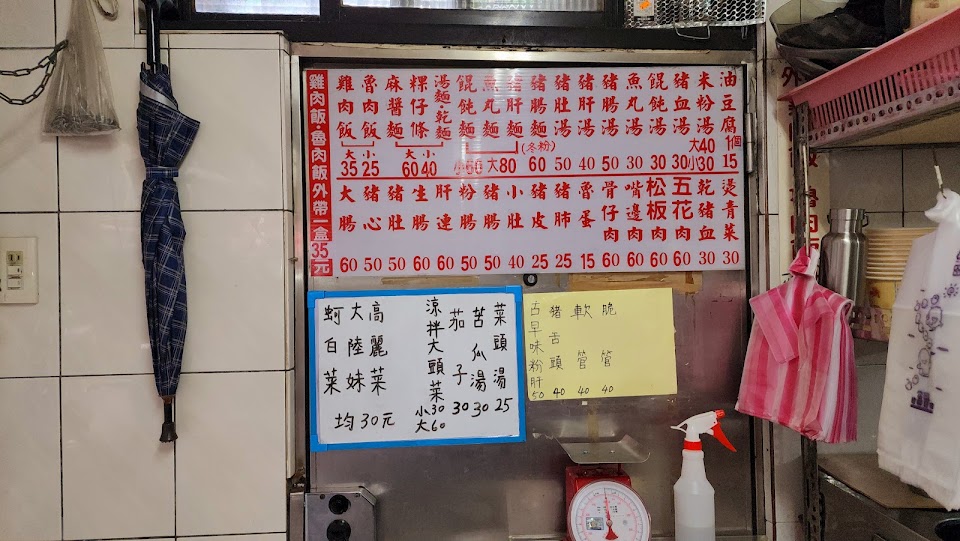 雞肉飯·魯肉飯外帶一盒35元
雞肉飯
魯肉飯
大35 小25
麻醬麵
粿仔條
湯麵·乾麵
大60 小40
餛飩麵
魚丸麵
豬肝麵
(冬粉)
小60 大80
豬腸麵 60
豬肚湯 50
豬肝湯 40
豬腸湯 50
魚丸湯 30
餛飩湯 30
豬血湯 30
米粉湯 大40 小30
油豆腐1個 15
大腸 60
豬心 50
豬肚 50
生腸 60
肝連 60
粉腸 60
豬腸 50
小肚 40
豬皮 25
豬肺 25
魯蛋 15
骨仔肉 60
嘴邊肉 60
松板肉 60
五花肉 60
乾豬血 30
燙青菜 30
菜頭湯 25
苦瓜湯 30
茄子 30
涼拌大頭菜 小30 大60
高麗菜
大陸妹
蚵白菜
均30元
古早味粉肝 50
豬舌頭 40
軟管 40
脆管 40